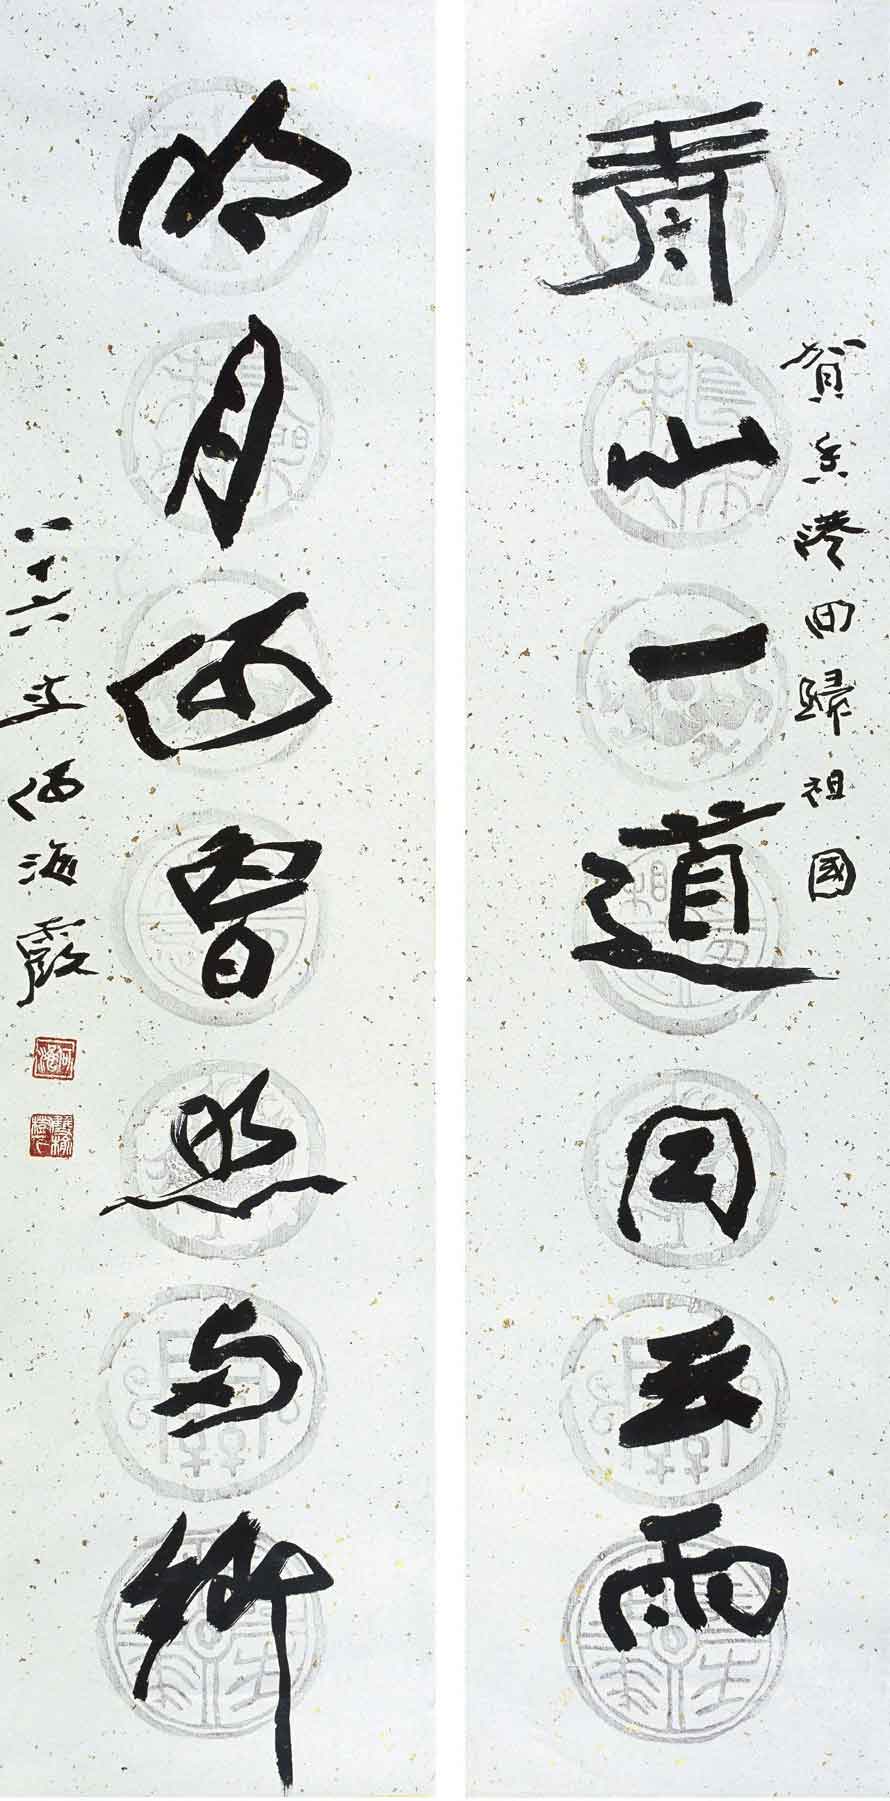 賀香港回歸祖國
青山一道同云雨
明月何曾照两鄉
八十六叟何海霞
何瀛